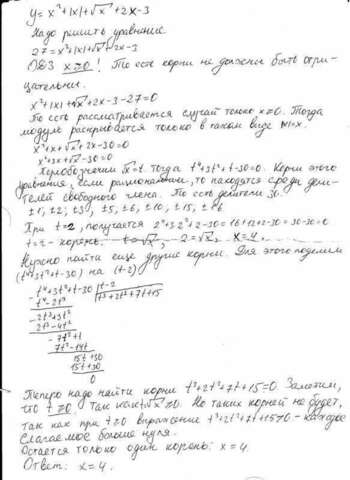 y = x² + |x| + √x + 2x - 3
Надо решить уравнение
27 = x² + |x| + √x + 2x - 3
ОДЗ x ≥ 0! То есть корни не должны быть отри-
цательны.
x² + |x| + √x + 2x - 3 - 27 = 0
То есть рассматривается случай только x ≥ 0. Тогда
модуль раскрывается только в таком виде |x| = x.
x² + x + √x + 2x - 30 = 0
x² + 3x + √x - 30 = 0
Переобозначим √x = t. Тогда t⁴ + 3t² + t - 30 = 0. Корни этого
уравнения, если рациональны, то находятся среди дели-
телей свободного члена. То есть делители 30.
±1, ±2, ±3, ±5, ±6, ±10, ±15,
При t = 2, получается 2⁴ + 3·2² + 2 - 30 = 16 + 12 + 2 - 30 = 30 - 30 = 0
t = 2 - корень. t = √x, 2 = √x, x = 4.
Нужно найти ещё другие корни. Для этого поделим
(t⁴ + 3t² + t - 30) на (t - 2)
t⁴ + 3t² + t - 30 | t - 2
t⁴ - 2t³ t³ + 2t² + 7t + 15
2t³ + 3t²
2t³ - 4t²
7t² + t
7t² - 14t
15t - 30
15t - 30
0
Теперь надо найти корни t³ + 2t² + 7t + 15 = 0. Заметим,
что t ≥ 0. Так как t = √x ≥ 0. Но таких корней не будет,
так как при t ≥ 0 выражение t³ + 2t² + 7t + 15 > 0 - каждое
слагаемое больше нуля.
Остается только один корень: x = 4.
Ответ: x = 4.